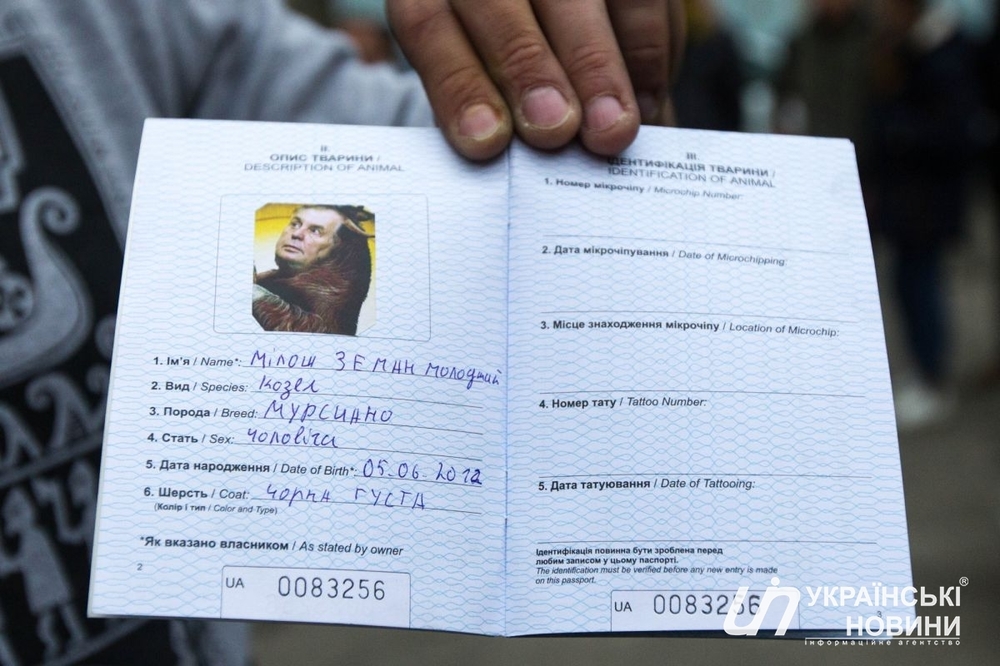 II.
ОПИС ТВАРИНИ /
DESCRIPTION OF ANIMAL
1. Ім'я / Name*: Мілош Земан молодший
2. Вид / Species: козел
3. Порода / Breed: Мурсиано
4. Стать / Sex: чоловіча
5. Дата народження / Date of Birth*: 05.06.2012
6. Шерсть / Coat: чорна густа
(Колір і тип / Color and Type)
*Як вказано власником / As stated by owner
2
UA 0083256
III.
ІДЕНТИФІКАЦІЯ ТВАРИНИ /
IDENTIFICATION OF ANIMAL
1. Номер мікрочіпу / Microchip Number:
2. Дата мікрочіпування / Date of Microchipping:
3. Місце знаходження мікрочіпу / Location of Microchip:
4. Номер тату / Tattoo Number:
5. Дата татуювання / Date of Tattooing:
Ідентифікація повинна бути зроблена перед
любим записом у цьому паспорті.
The identification must be verified before any new entry is made
on this passport.
UA 0083256
3
УКРАЇНСЬКІ®
НОВИНИ
інформаційне агентство